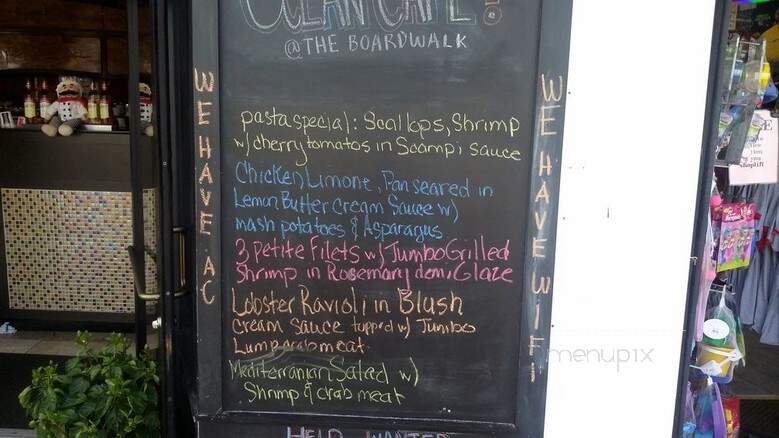 OCEAN CAFE!
@THE BOARDWALK
WE HAVE AC
pasta special: Scallops, Shrimp
w/ cherry tomatos in Scampi sauce
Chicken Limone, Pan seared in
Lemon Butter Cream Sauce w)
mash potatoes & Asparagus
3 petite Filets w/ Jumbo Grilled
Shrimp in Rosemary demi Glaze
Lobster Ravioli in Blush
Cream Sauce topped w) Jumbo
Lump crab meat
Mediterranian Salad w)
Shrimp & crab meat
HELP WANTED
WE HAVE WIFI
menupix